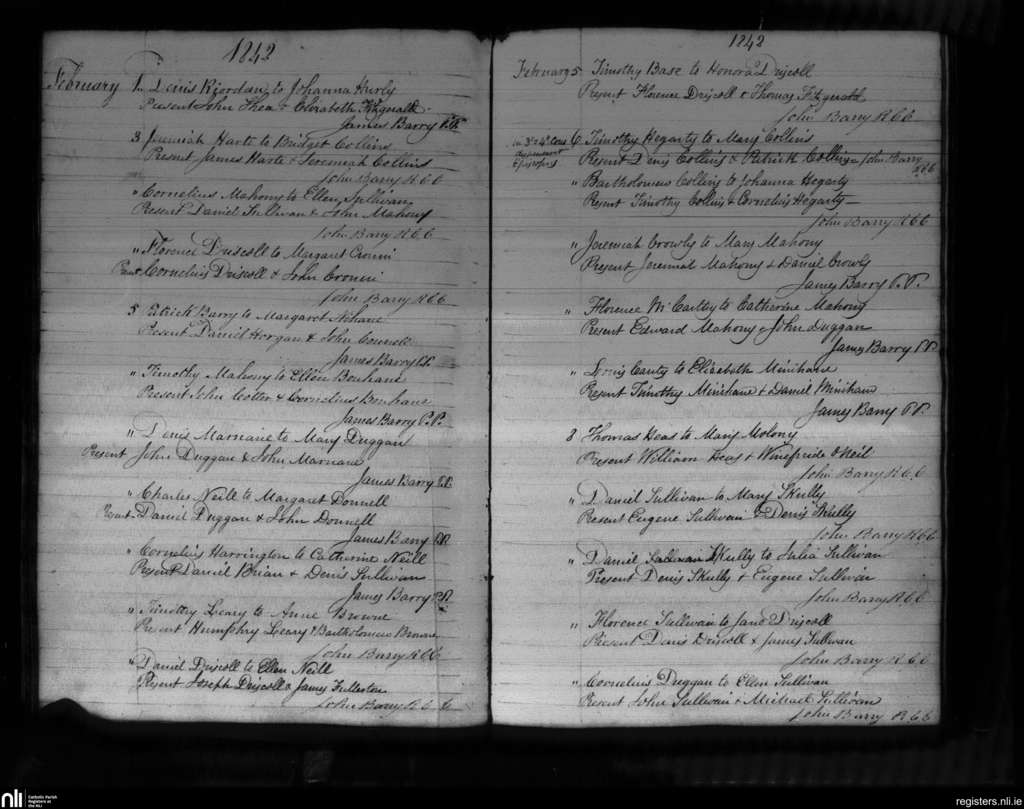 1842
February 1 Denis Riordan to Johanna Hurly
Present John Shea & Elizabeth Fitzgerald
James Barry P.P.
3 Jeremiah Harte to Bridget Collins
Present James Harte & Jeremiah Collins
John Barry RCC
" Cornelius Mahony to Ellen Sullivan
Present Daniel Sullivan & John Mahony
John Barry RCC
" Florence Driscoll to Margaret Cronin
Present Cornelius Driscoll & John Cronin
John Barry RCC
5 Patrick Barry to Margaret Nihane
Present Daniel Horgan & John Connell
James Barry P.P.
" Timothy Mahony to Ellen Bonhane
Present John Cotter & Cornelius Bonhane
James Barry P.P.
" Denis Marnane to Mary Duggan
Present John Duggan & John Marnane
James Barry P.P.
" Charles Neill to Margaret Donnell
Present Daniel Duggan & John Donnell
James Barry P.P.
" Cornelius Harrington to Catherine Neill
Present Daniel Brian & Denis Sullivan
James Barry P.P.
" Timothy Leary to Anne Browne
Present Humphry Leary & Bartholomew Browne
John Barry RCC
" Daniel Driscoll to Ellen Neill
Present Joseph Driscoll & James Fullerton
John Barry RCC
1842
February 5 Timothy Base to Honora Driscoll
Present Florence Driscoll & Thomas Fitzgerald
John Barry RCC
in 3º & 4º con 6 Timothy Hegarty to Mary Collins
Present Denis Collins & Patrick Collins John Barry
RCC
" Bartholomew Collins to Johanna Hegarty
Present Timothy Collins & Cornelius Hegarty
John Barry RCC
" Jeremiah Crowly to Mary Mahony
Present Jeremiah Mahony & Daniel Crowly
James Barry P.P.
" Florence McCartby to Catherine Mahony
Present Edward Mahony & John Duggan
James Barry P.P.
" Denis Canty to Elizabeth Minihane
Present Timothy Minihane & Daniel Minihane
James Barry P.P.
8 Thomas Heas to Mary Molony
Present William Heas & Winefride O Neil
John Barry RCC
" Daniel Sullivan to Mary Skully
Present Eugene Sullivan & Denis Skully
John Barry RCC
" Daniel Skully to Julia Sullivan
Present Denis Skully & Eugene Sullivan
John Barry RCC
" Florence Sullivan to Jane Driscoll
Present Denis Driscoll & James Sullivan
John Barry RCC
" Cornelius Duggan to Ellen Sullivan
Present John Sullivan & Michael Sullivan
John Barry RCC
nli Catholic Parish
Registers at
the NLI
registers.nli.ie